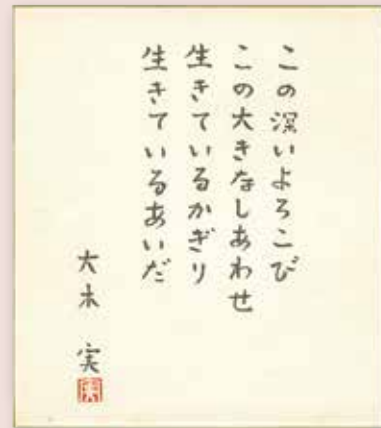 この深いよろこび
この大きなしあわせ
生きているかぎり
生きているあいだ
大木 実
実